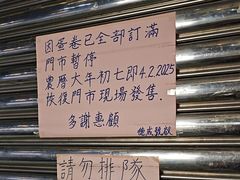 因蛋卷已全部訂滿
門市暫停
農曆大年初七即4.2.2025
恢復門市現場發售.
多謝惠顧
德成號啟
請勿排隊